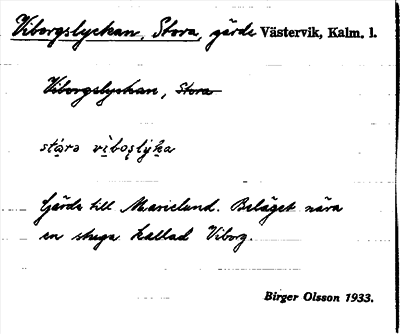 Viborgslyckan, Stora, gärde Västervik, Kalm. l.
Viborgslyckan, Stora
stárə vìboșlyka
Gärde till Marielund. Beläget nära
en stuga kallad Viborg.
Birger Olsson 1933.